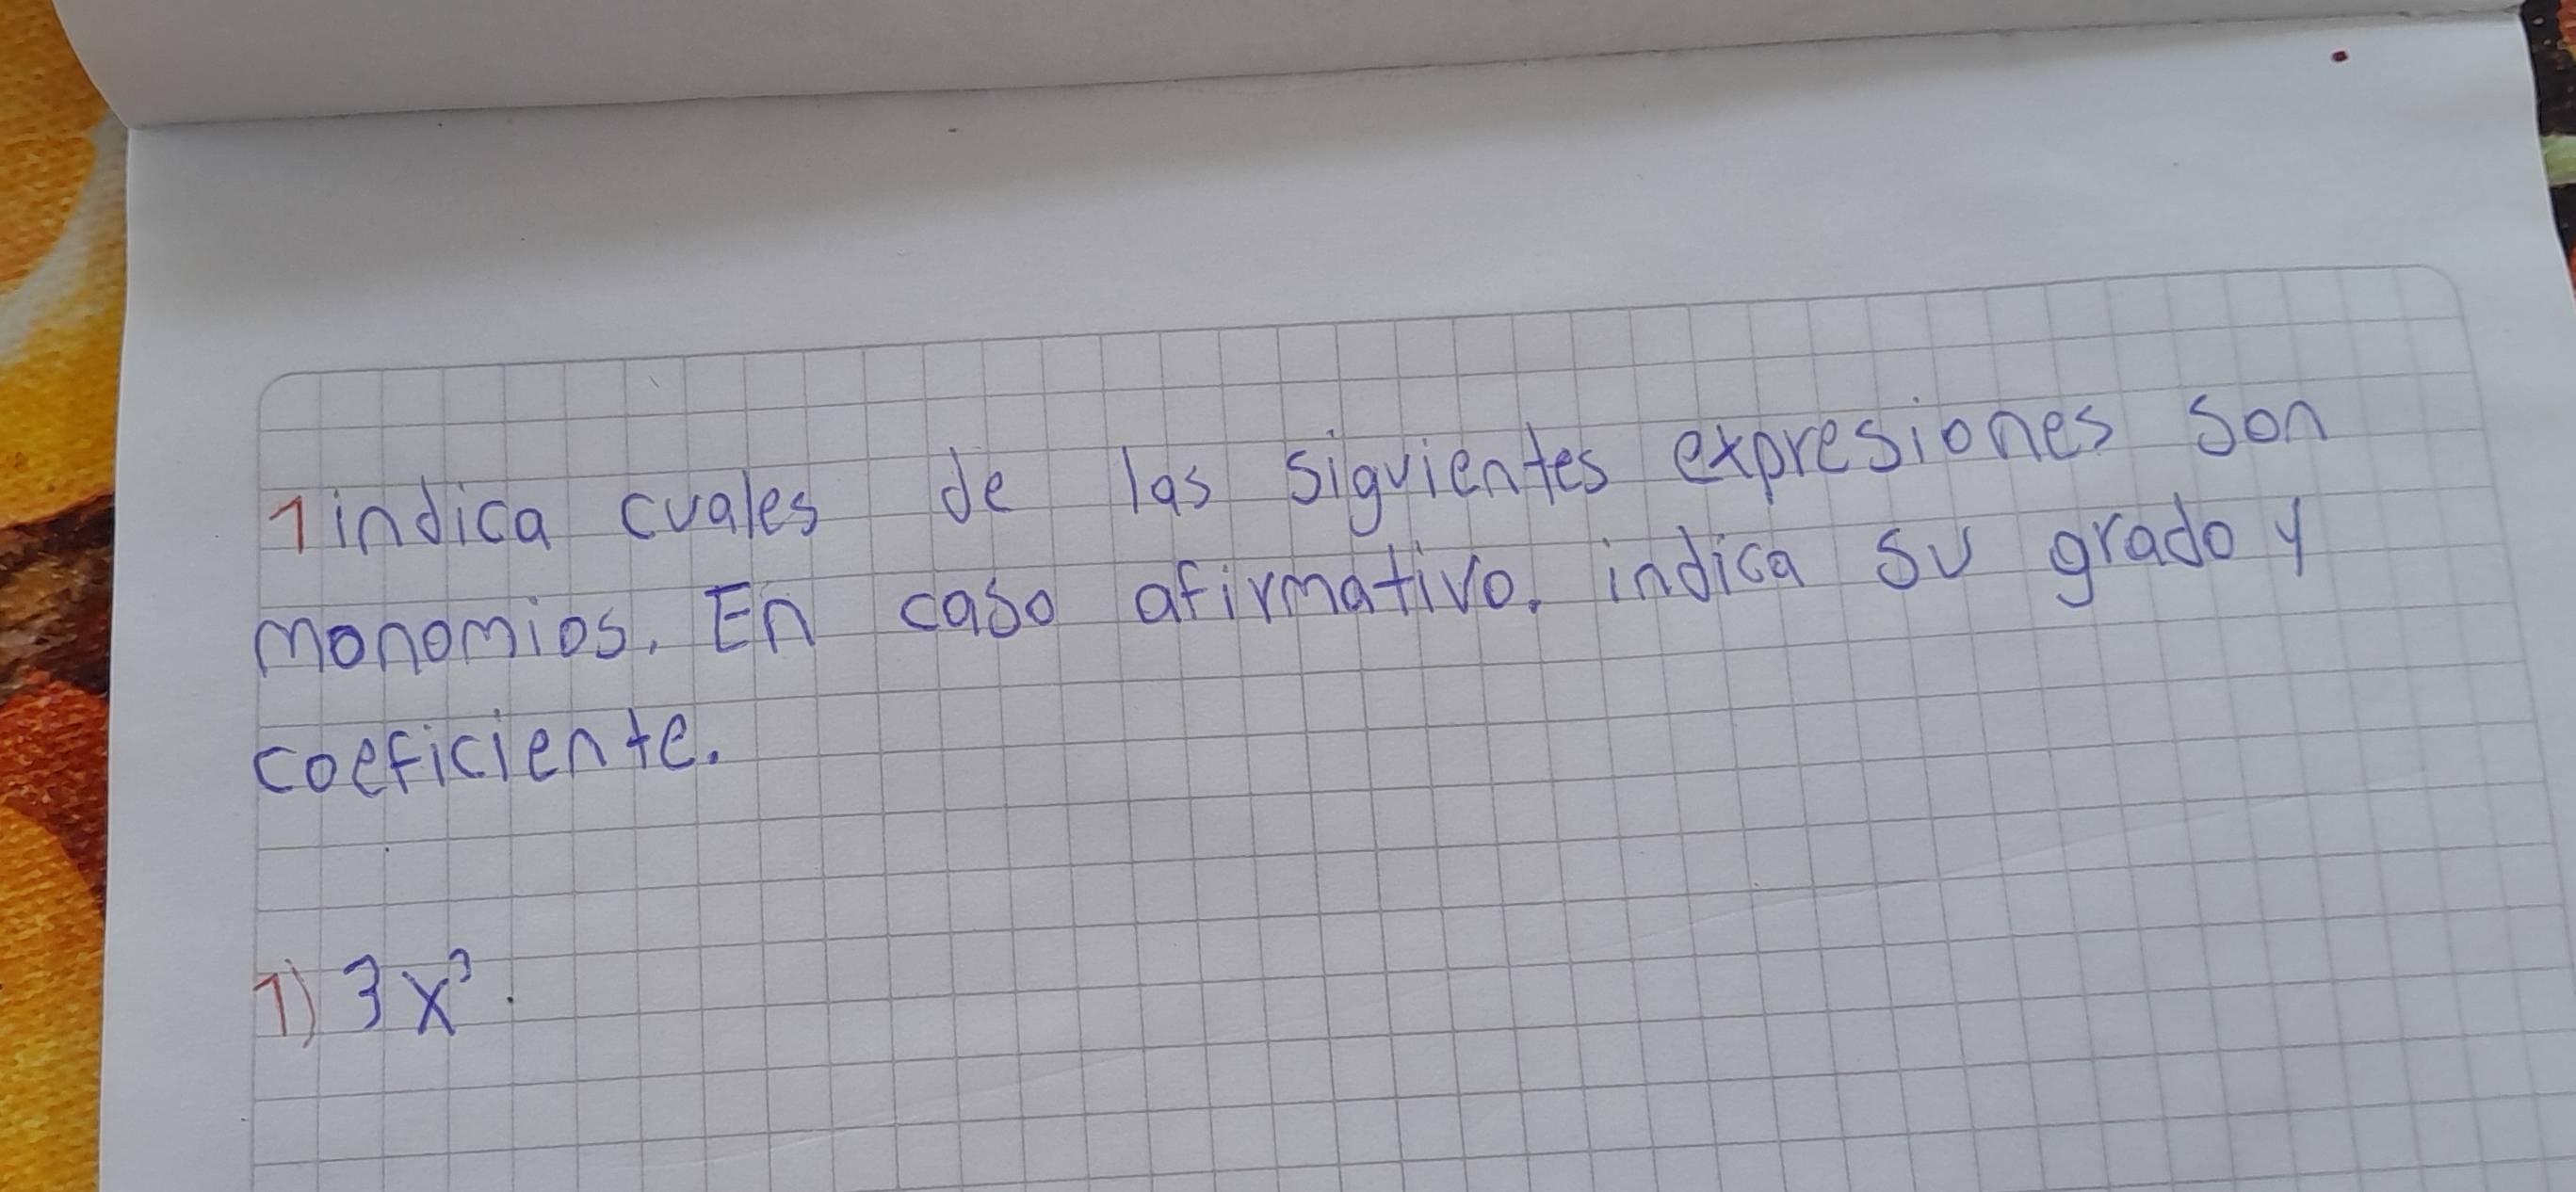 1 indica cuales de las siguientes expresiones son
monomios. En caso afirmativo. indica su grado y
coeficiente.
1) 3x³